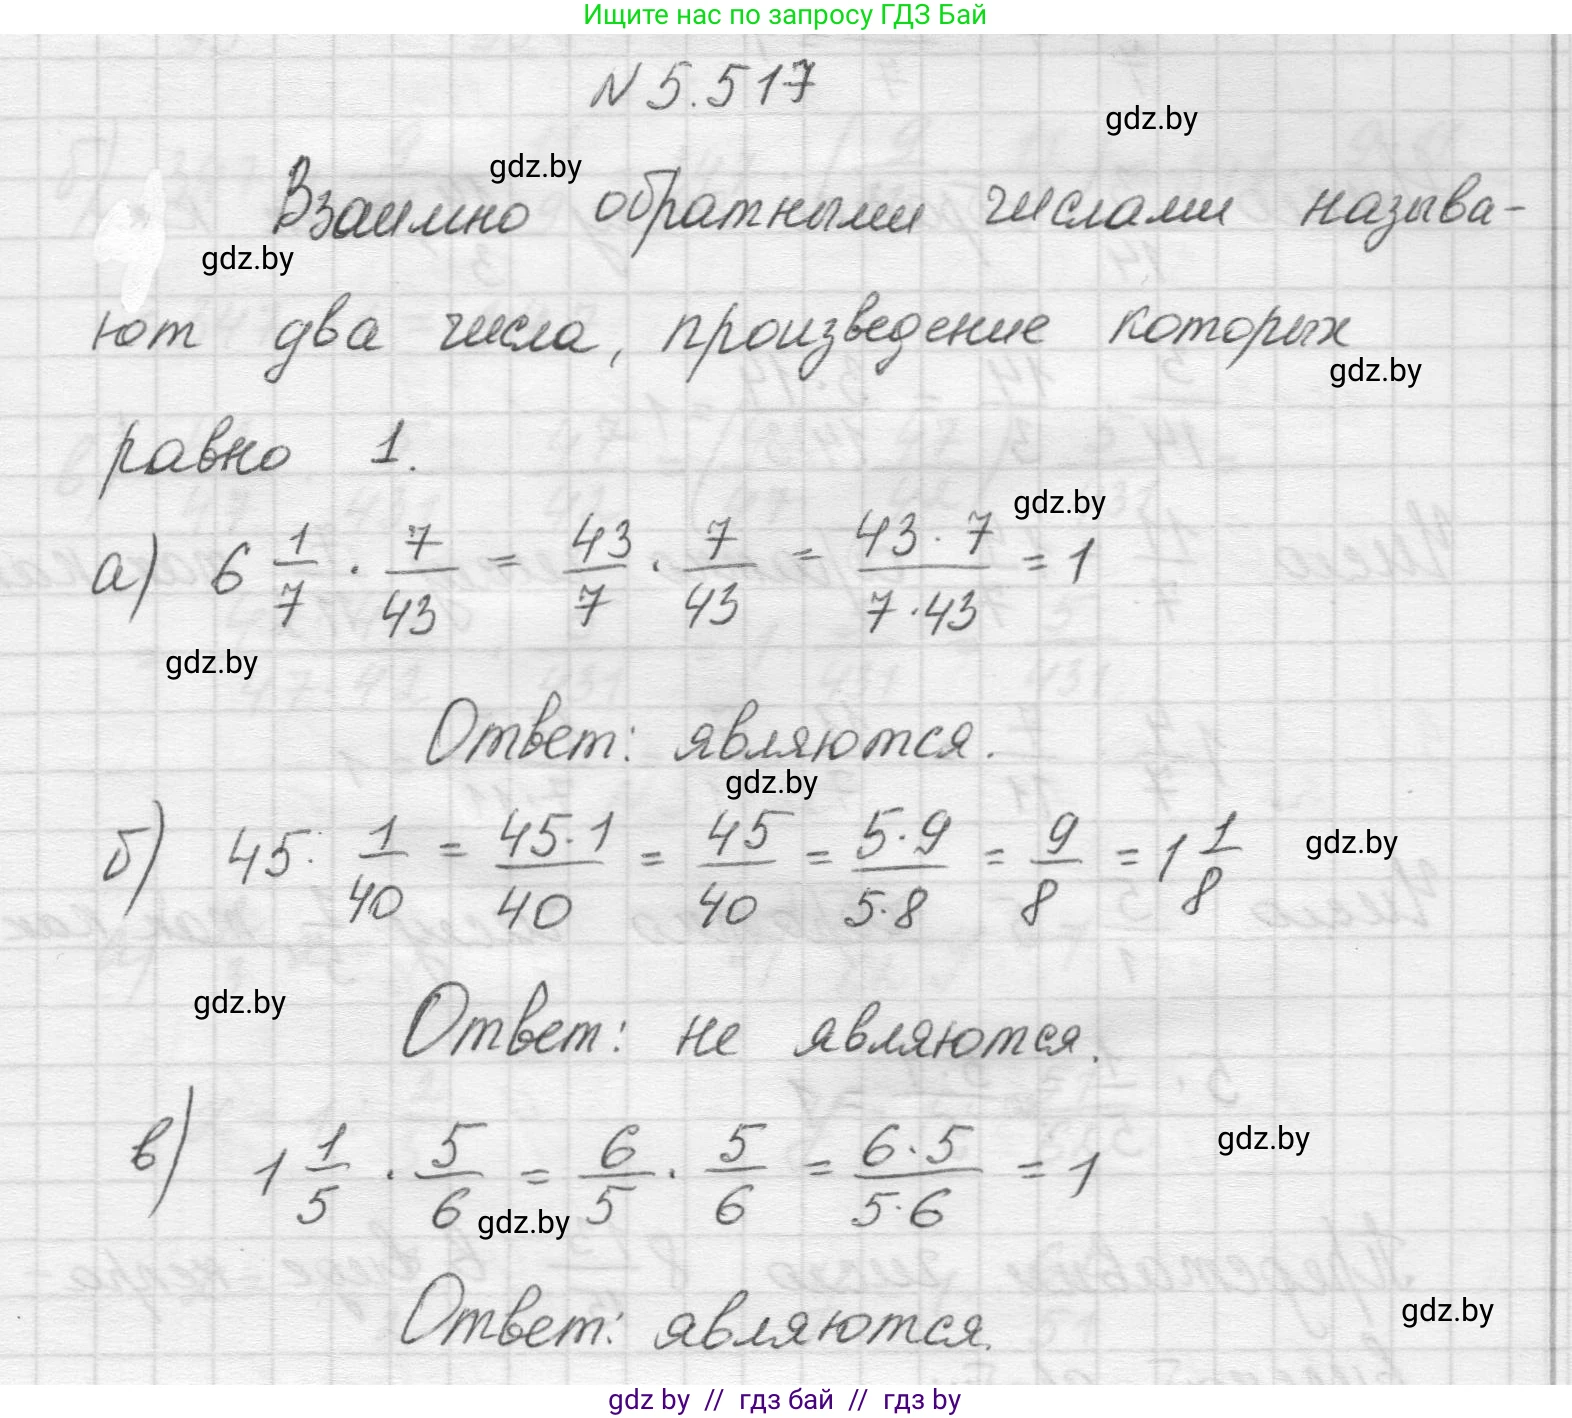 Ищите нас по запросу ГДЗ Бай
N 5.517
gdz.by
gdz.by
Взаимно обратными числами называ-
gdz.by
ют два числа, произведение которых
gdz.by
равно 1.
gdz.by
а) 6 1/7 · 7/43 = 43/7 · 7/43 = 43·7/7·43 = 1
gdz.by
Ответ: являются.
gdz.by
б) 45 · 1/40 = 45·1/40 = 45/40 = 5·9/5·8 = 9/8 = 1 1/8
gdz.by
gdz.by
Ответ: не являются.
в) 1 1/5 · 5/6 = 6/5 · 5/6 = 6·5/5·6 = 1
gdz.by
gdz.by
Ответ: являются.
gdz.by
gdz by // гдз бай // gdz by